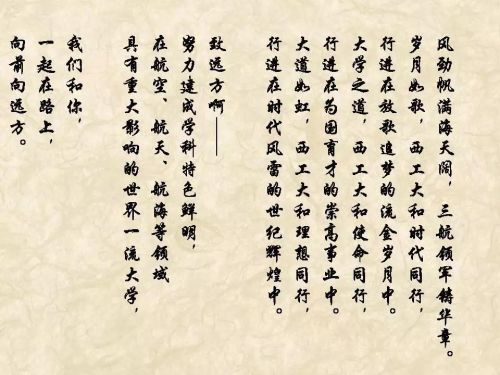 风劲帆满海天阔，三航领军铸华章。
岁月如歌，西工大和时代同行，
行进在放歌追梦的流金岁月中。
大学之道，西工大和使命同行，
行进在为国育才的崇高事业中。
大道如虹，西工大和理想同行，
行进在时代风雷的世纪辉煌中。
致远方啊——
努力建成学科特色鲜明，
在航空、航天、航海等领域
具有重大影响的世界一流大学，
我们和你，
一起在路上，
向前向远方。